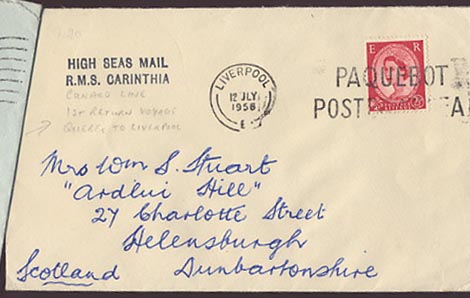 7.20
HIGH SEAS MAIL
R.M.S. CARINTHIA
CUNARD LINE
1ST RETURN VOYAGE
QUEBEC TO LIVERPOOL
LIVERPOOL
12 JLY
1956
E
PAQUEBOT
POST
E R
Mrs Wm S. Stuart
"Ardlui Hill"
27 Charlotte Street
Helensburgh
Scotland Dunbartonshire